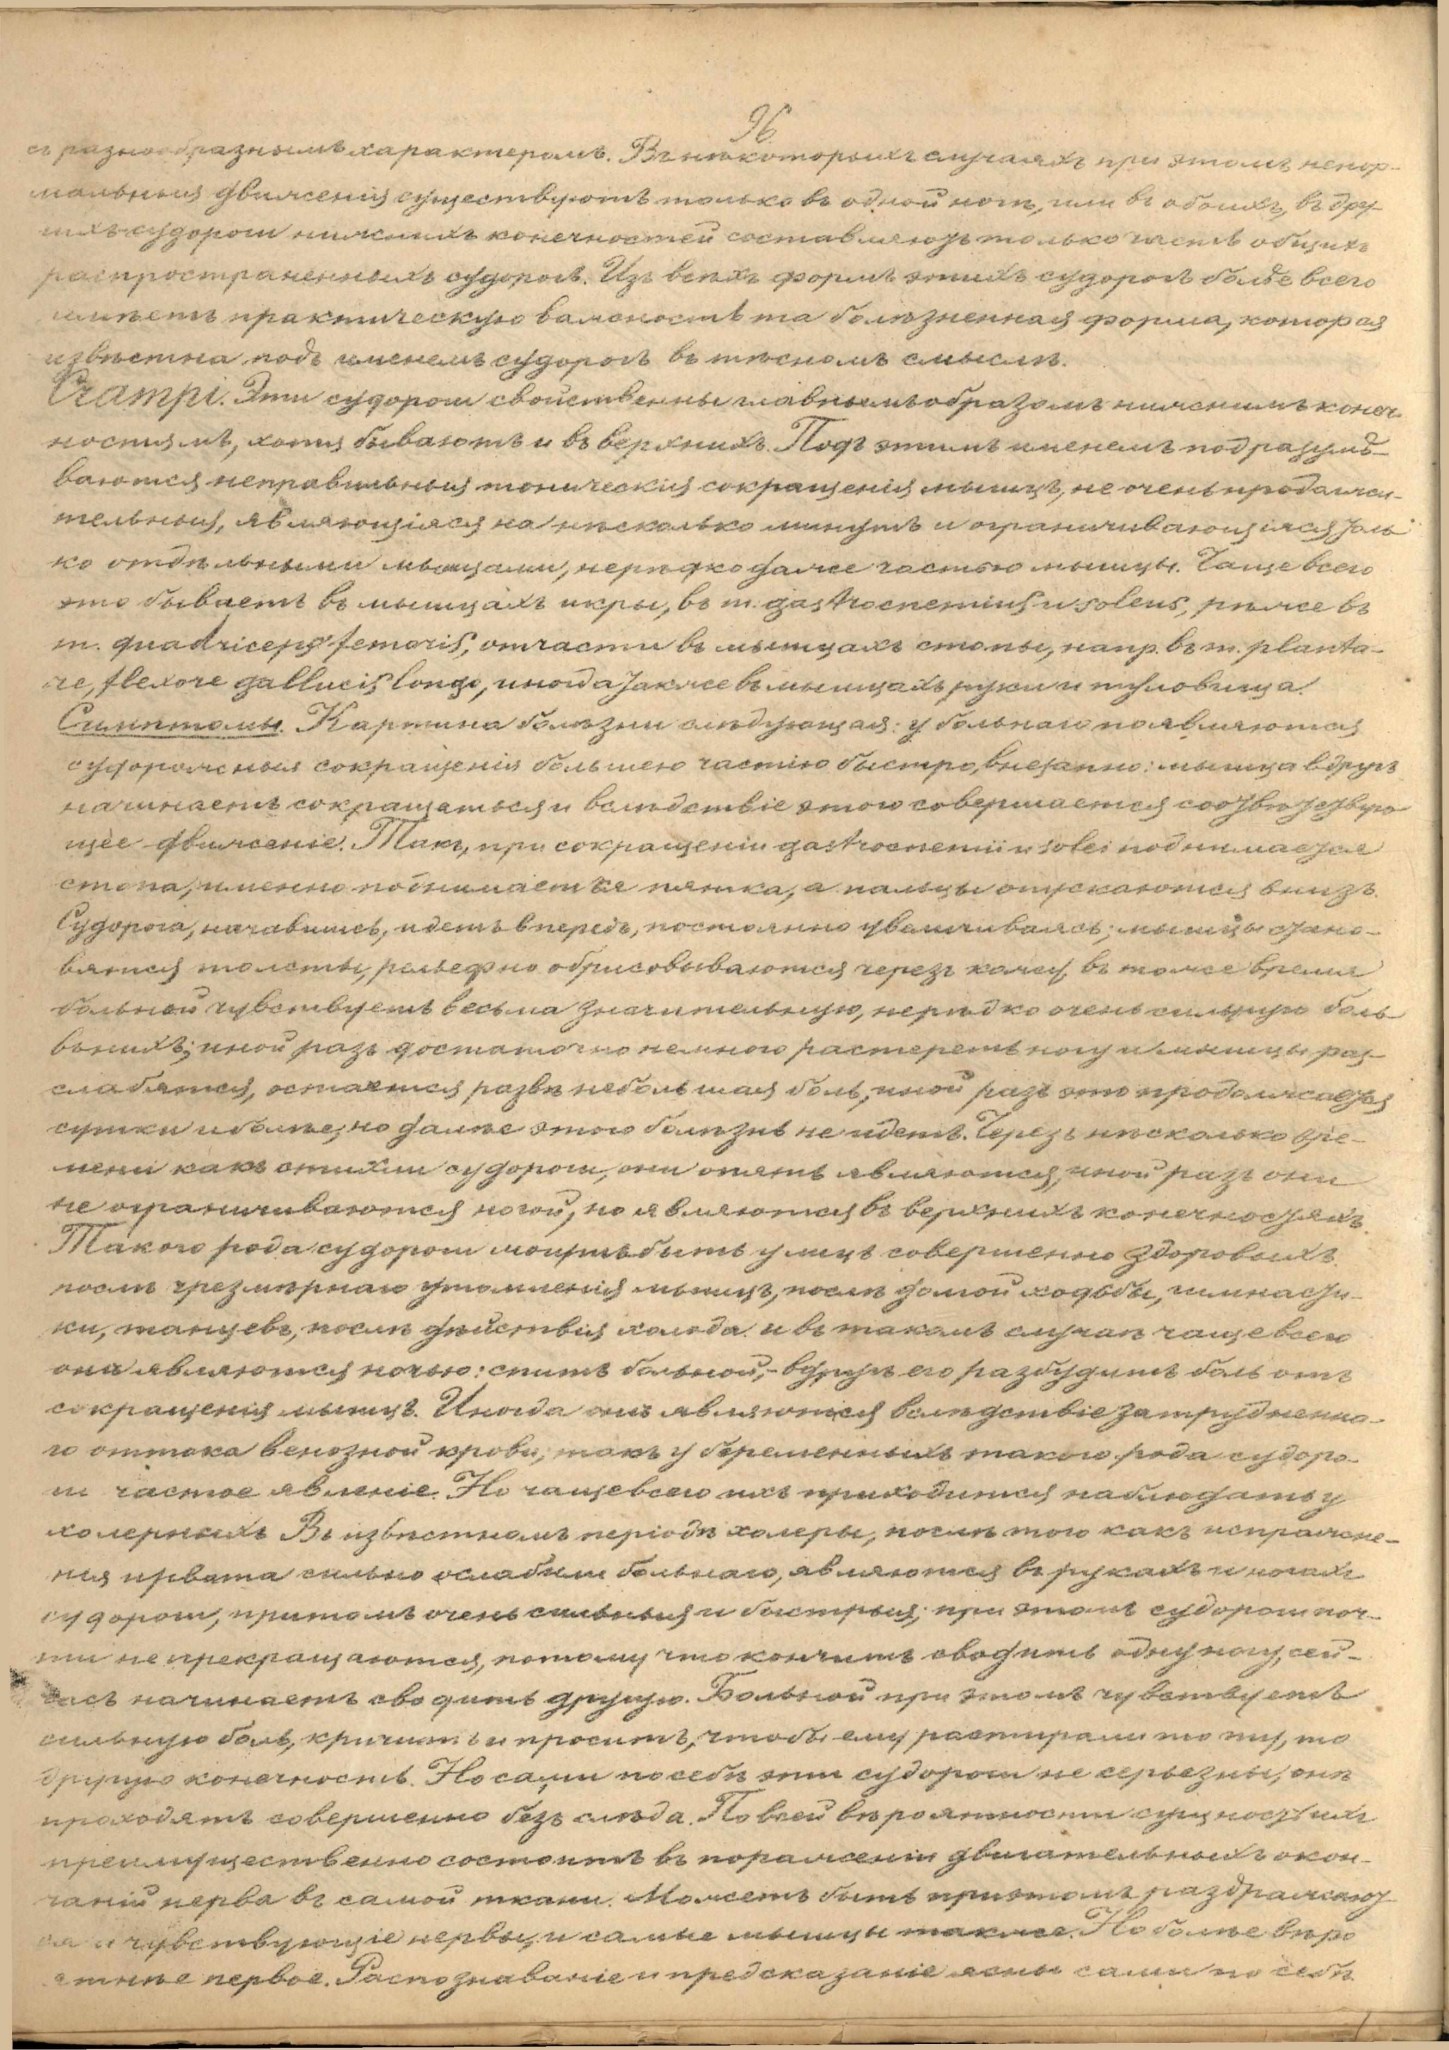 96
съ разнообразнымъ характеромъ. Въ нѣкоторыхъ случаяхъ при этомъ ненор-
мальныя движенія существуютъ только въ одной ногѣ, или въ обоихъ, въ дру-
гихъ судороги нижнихъ конечностей составляютъ только часть общихъ
распространенныхъ судорогъ. Изъ всѣхъ формъ этихъ судорогъ болѣе всего
имѣетъ практическую важность та болѣзненная форма, которая
извѣстна подъ именемъ судорогъ въ тѣсномъ смыслѣ.
Crampi. Эти судороги свойственны главнымъ образомъ нижнимъ конеч-
ностямъ, хотя бываютъ и въ верхнихъ. Подъ этимъ именемъ подразумѣ-
ваются неправильныя тоническія сокращенія мышцъ, не очень продолжи-
тельныя, являющіяся на нѣсколько минутъ и ограничивающіяся толь
ко отдѣльными мышцами, нерѣдко даже частью мышцы. Чаще всего
это бываетъ въ мышцахъ икры, въ m. gastrocnemius и soleus, рѣже въ
m. quadriceps femoris, отчасти въ мышцахъ стопы, напр. въ m. planta-
re, flexore gallucis longo, иногда также въ мышцахъ руки и туловища.
Симптомы. Картина болѣзни слѣдующая: у больнаго появляются
судорожныя сокращенія большею частію быстро, внезапно: мышца вдругъ
начинаетъ сокращаться и вслѣдствіе этого совершается соотвѣтствую
щее движеніе. Такъ, при сокращеніи gastrocnemii и solei поднимается
стопа, именно поднимается пятка, а пальцы опускаются внизъ.
Судорога, начавшись, идетъ впередъ, постоянно увеличиваясь; мышцы стано-
вятся толсты, рельефно обрисовываются черезъ кожу, въ тоже время
больной чувствуетъ весьма значительную, нерѣдко очень сильную боль
въ нихъ; иной разъ достаточно немного растереть ногу и мышцы раз-
слабятся, остается развѣ небольшая боль, иной разъ это продолжается
сутки и болѣе, но далѣе этого болѣзнь не идетъ. Черезъ нѣсколько вре-
мени какъ стихли судороги, они опять являются, иной разъ они
не ограничиваются ногой, но являются въ верхнихъ конечностяхъ.
Такого рода судороги могутъ быть у лицъ совершенно здоровыхъ
послѣ чрезмѣрнаго утомленія мышцъ, послѣ долгой ходьбы, гимнасти-
ки, танцевъ, послѣ дѣйствія холода и въ такомъ случаѣ чаще всего
она являются ночью: спитъ больной,- вдругъ его разбудитъ боль отъ
сокращенія мышцъ. Иногда онѣ являются вслѣдствіе затрудненна-
го оттока венозной крови; такъ у беременныхъ такого рода судоро-
ги частое явленіе. Но чаще всего ихъ приходится наблюдать у
холерныхъ. Въ извѣстномъ періодѣ холеры, послѣ того какъ испражне-
нія и рвота сильно ослабили больнаго, являются въ рукахъ и ногахъ
судороги, притомъ очень сильныя и быстрыя; при этомъ судороги поч-
ти не прекращаются, потому что кончитъ сводить одну ногу, сей-
часъ начинаетъ сводить другую. Больной при этомъ чувствуетъ
сильную боль, кричитъ и проситъ, чтобы ему растирали то ту, то
другую конечность. Но сами по себѣ эти судороги не серьезны, онѣ
проходятъ совершенно безъ слѣда. По всей вѣроятности сущность ихъ
преимущественно состоитъ въ пораженіи двигательныхъ окон-
чаній нерва въ самой ткани. Можетъ быть при этомъ раздражают
ся и чувствующіе нервы, и самые мышцы также. Но болѣе вѣро
ятнѣе первое. Распознаваніе и предсказаніе ясны сами по себѣ